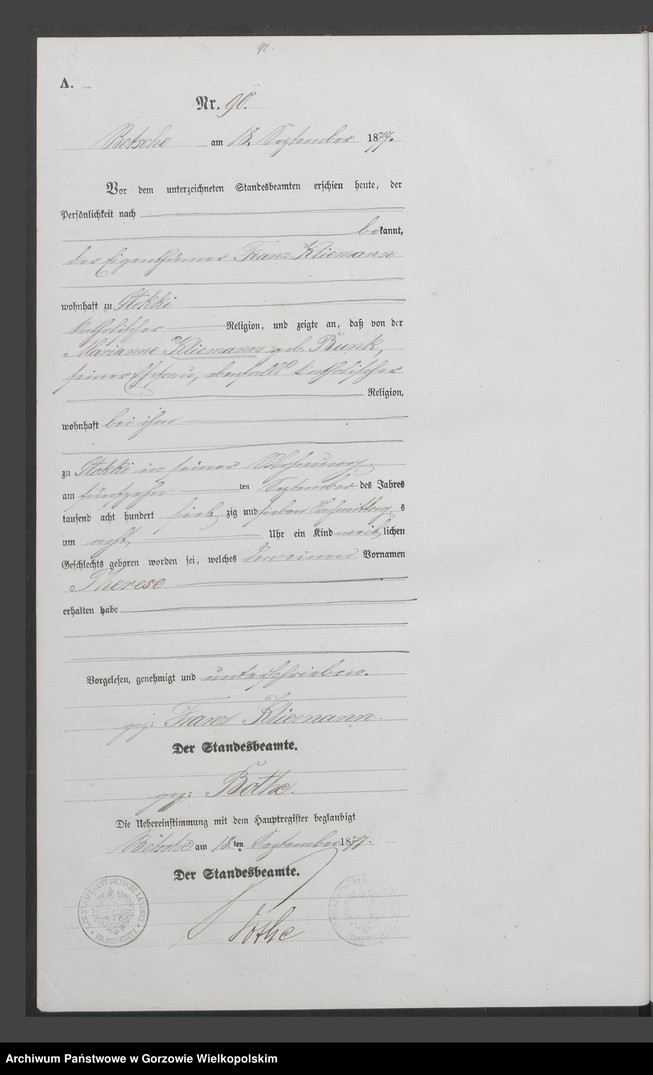 90.
A.
Nr. 90.
Betsche am 18. September 1877.
Vor dem unterzeichneten Standesbeamten erschien heute, der
Persönlichkeit nach
bekannt,
der Eigenthümer Franz Kliemann
wohnhaft zu Stokki
katholischer Religion, und zeigte an, daß von der
Marianne Kliemann geb. Bunk,
seiner Ehefrau, ebenfalls katholischer
Religion,
wohnhaft bei ihm
zu Stokki in seiner Wohnung
am fünfzehnten September des Jahres
tausend acht hundert siebzig und sieben Nachmittags
um acht Uhr ein Kind weiblichen
Geschlechts geboren worden sei, welches den einen Vornamen
Therese
erhalten habe
Vorgelesen, genehmigt und unterschrieben.
gez: Franz Kliemann.
Der Standesbeamte.
gez: Bothe.
Die Uebereinstimmung mit dem Hauptregister beglaubigt
Betsche am 18.ten September 1877.
Der Standesbeamte.
Bothe
Archiwum Państwowe w Gorzowie Wielkopolskim